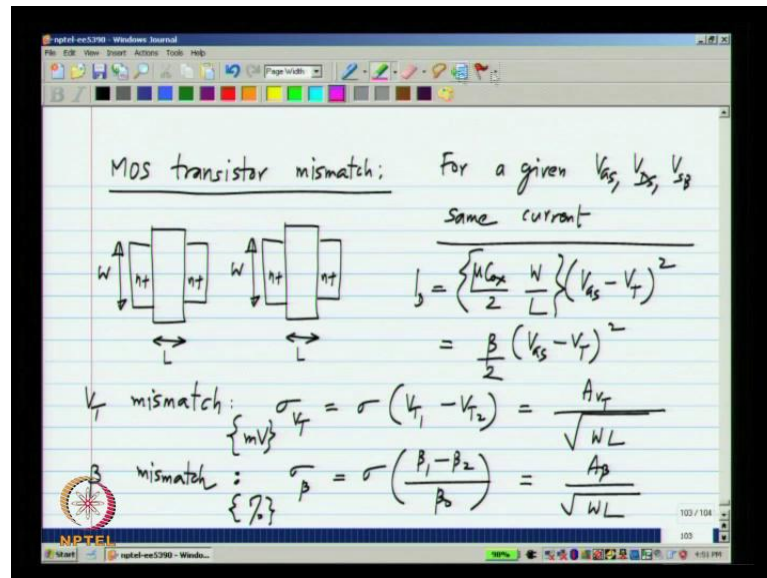 nptel-ee5390 - Windows Journal
File Edit View Insert Actions Tools Help
Page Width
B I
MOS transistor mismatch:
For a given V_GS, V_DS, V_SB
same current
W n+ n+ L
W n+ n+ L
I_D = {μCox/2 W/L}(V_GS - V_T)^2
= β/2 (V_GS - V_T)^2
V_T mismatch: σ_V_T = σ(V_T1 - V_T2) = A_VT/√WL
{mV}
β mismatch: σ_β = σ((β1 - β2)/β0) = Aβ/√WL
{%}
NPTEL
103 / 104
103
Start
nptel-ee5390 - Windo...
90%
4:51 PM